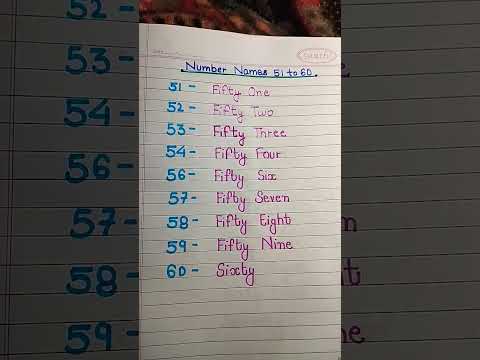 Number Names 51 to 60
51 - Fifty One
52 - Fifty Two
53 - Fifty Three
54 - Fifty Four
56 - Fifty Six
57 - Fifty Seven
58 - Fifty Eight
59 - Fifty Nine
60 - Sixty